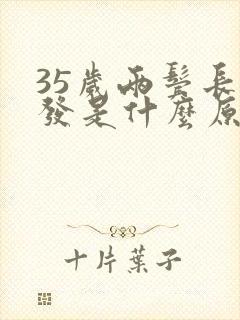 35歲兩鬢長
發是什麼原
十片葉子